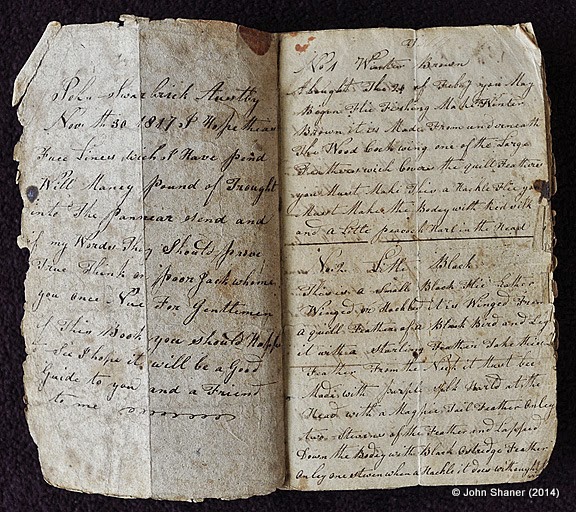 John Swarbrick Austby
Nov th 30 1817 I Hope thear
Free Lines wich I Have pend
Will Maney pound of Trought
into The pannear send and
if my Words They Should prove
True Think on poor Jack whome
you once - For Gentlemen
if This Book you Should Happ
to See I hope it will be a Good
Guide to you and a Friend
to me
21
No 1 Winter Brown
About The 24 of Feby you May
Begin Flie Fishing Make Winter
Brown it is Made From underneath
The Wood Cock wing one of the Large
Feathers wich Covers the quill Feathers
you Must Make This a Hackle Flie you
Must Make the Bodey with Red Silk
and a Little peacock Harl in the Head
No 2 Little Black
This is a Small Black Flie Eather
Winged or Hackled it is Winged From
a quill Feather of a Black Bird and Leg
it with a Starling Feather Take this
Feather From the Neck it Must be
Made with purple Silk Harld at the
Head with a Magpie Tail Feather onley
two Stevens of the Feather and Lapped
Down the Bodey with Black Ostridge Feather
onley one steven when a Hackle it does without
© John Shaner (2014)